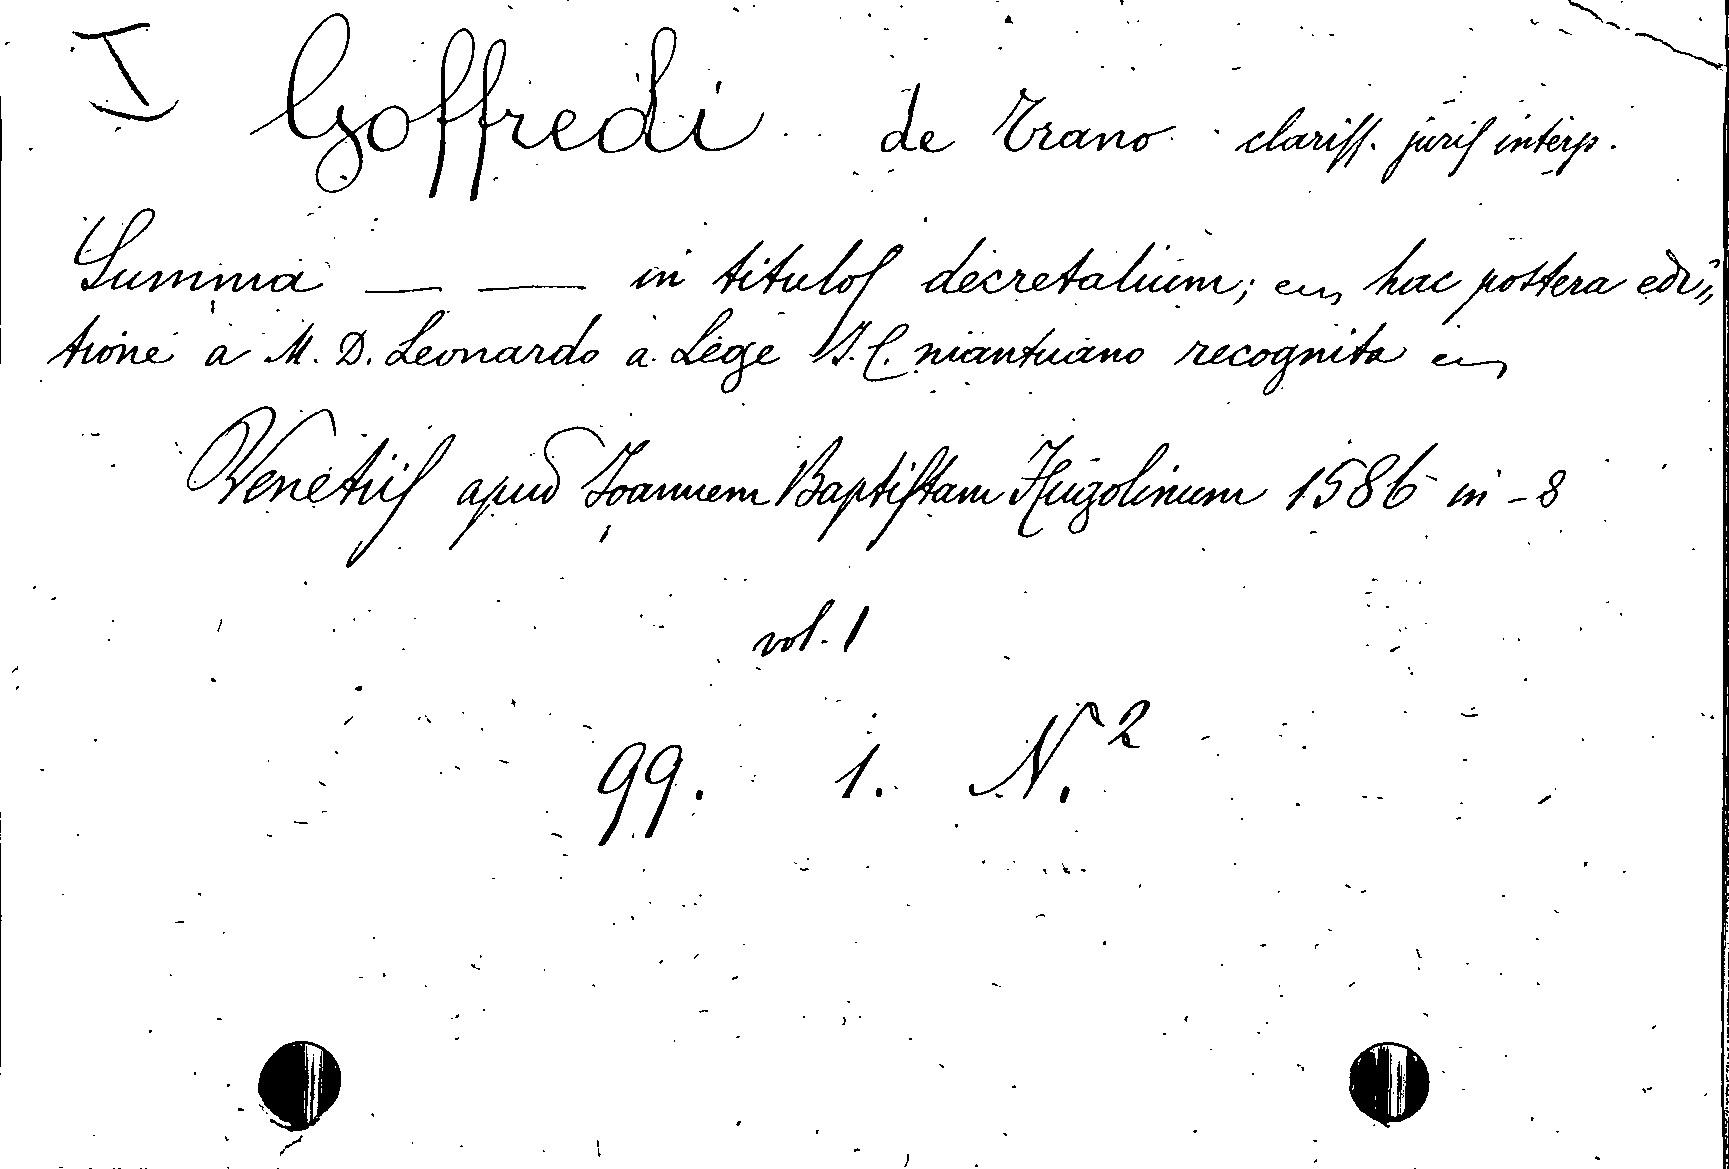 I Goffredi de Trano clariss. juris interp.
Summa — — in titulos decretalium; en hac postera edi„
tione a M. D. Leonardo a Lege J. C. mantuano recognita
Venetiis apud Joannem Baptistam Hugolinum 1586 in-8
vol. 1
99. 1. N. 2